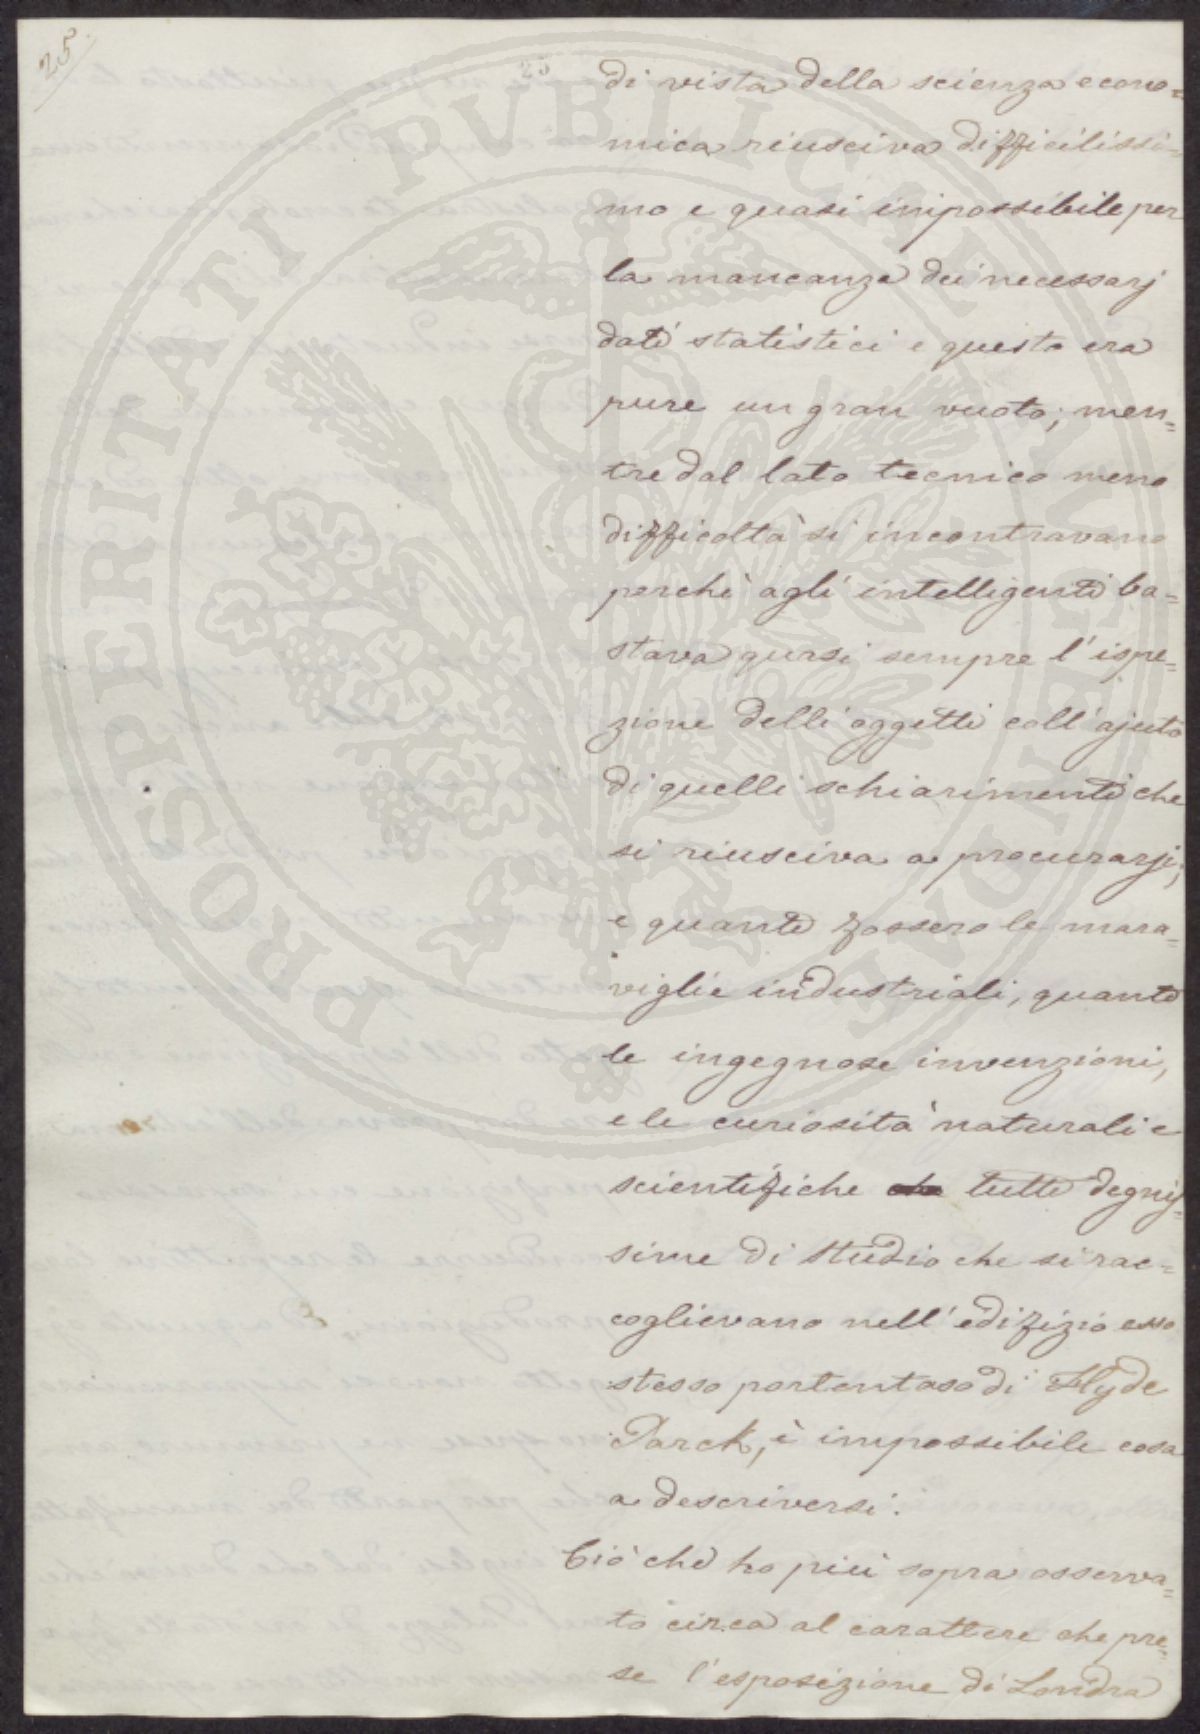 25.
25
di vista della scienza econo=
mica riusciva difficilissi=
mo e quasi impossibile per
la mancanza dei necessarj
dati statistici e questo era
pure un gran vuoto; men=
tre dal lato tecnico meno
difficoltà si incontravano
perchè agli intelligenti ba=
stava quasi sempre l'ispe=
zione delli oggetti coll'ajuto
di quelli schiarimenti che
si riusciva a procurarsi;
e quante fossero le mara=
viglie industriali, quante
le ingegnose invenzioni,
e le curiosità naturali e
scientifiche tutte degnis=
sime di studio che si rac=
coglievano nell'edifizio esso
stesso portentoso di Hyde
Parck, è impossibile cosa
a descriversi.
Ciò che ho più sopra osserva=
to circa al carattere che pre=
se l'esposizione di Londra
PROSPERITATI PUBLICAE AUGENDAE